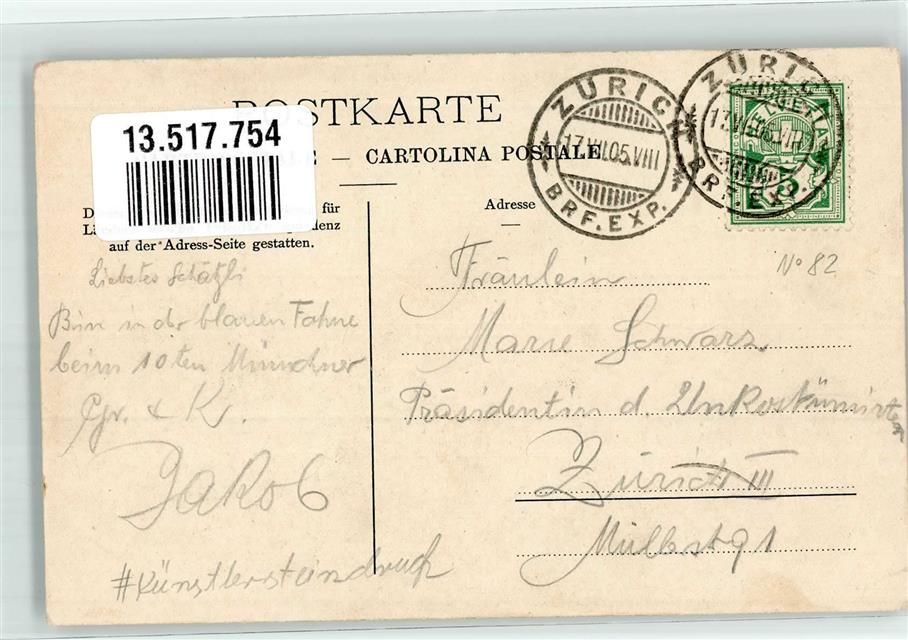 13.517.754
POSTKARTE
— CARTOLINA POSTALE
für
auf der Adress-Seite gestatten.
Adresse
ZÜRICH
17.VII.05.VIII
BRF.EXP.
ZÜRICH
BRF.EXP.
No 82
Liebstes Schätzli
Bin in der blauen Fahne
beim 10ten Münchner
Gr. & K.
Jakob
#Künstlersteindruck
Fräulein
Marie Schwarz
Präsidentin d. Unkostümirten
Zürich III
Müllerst 91